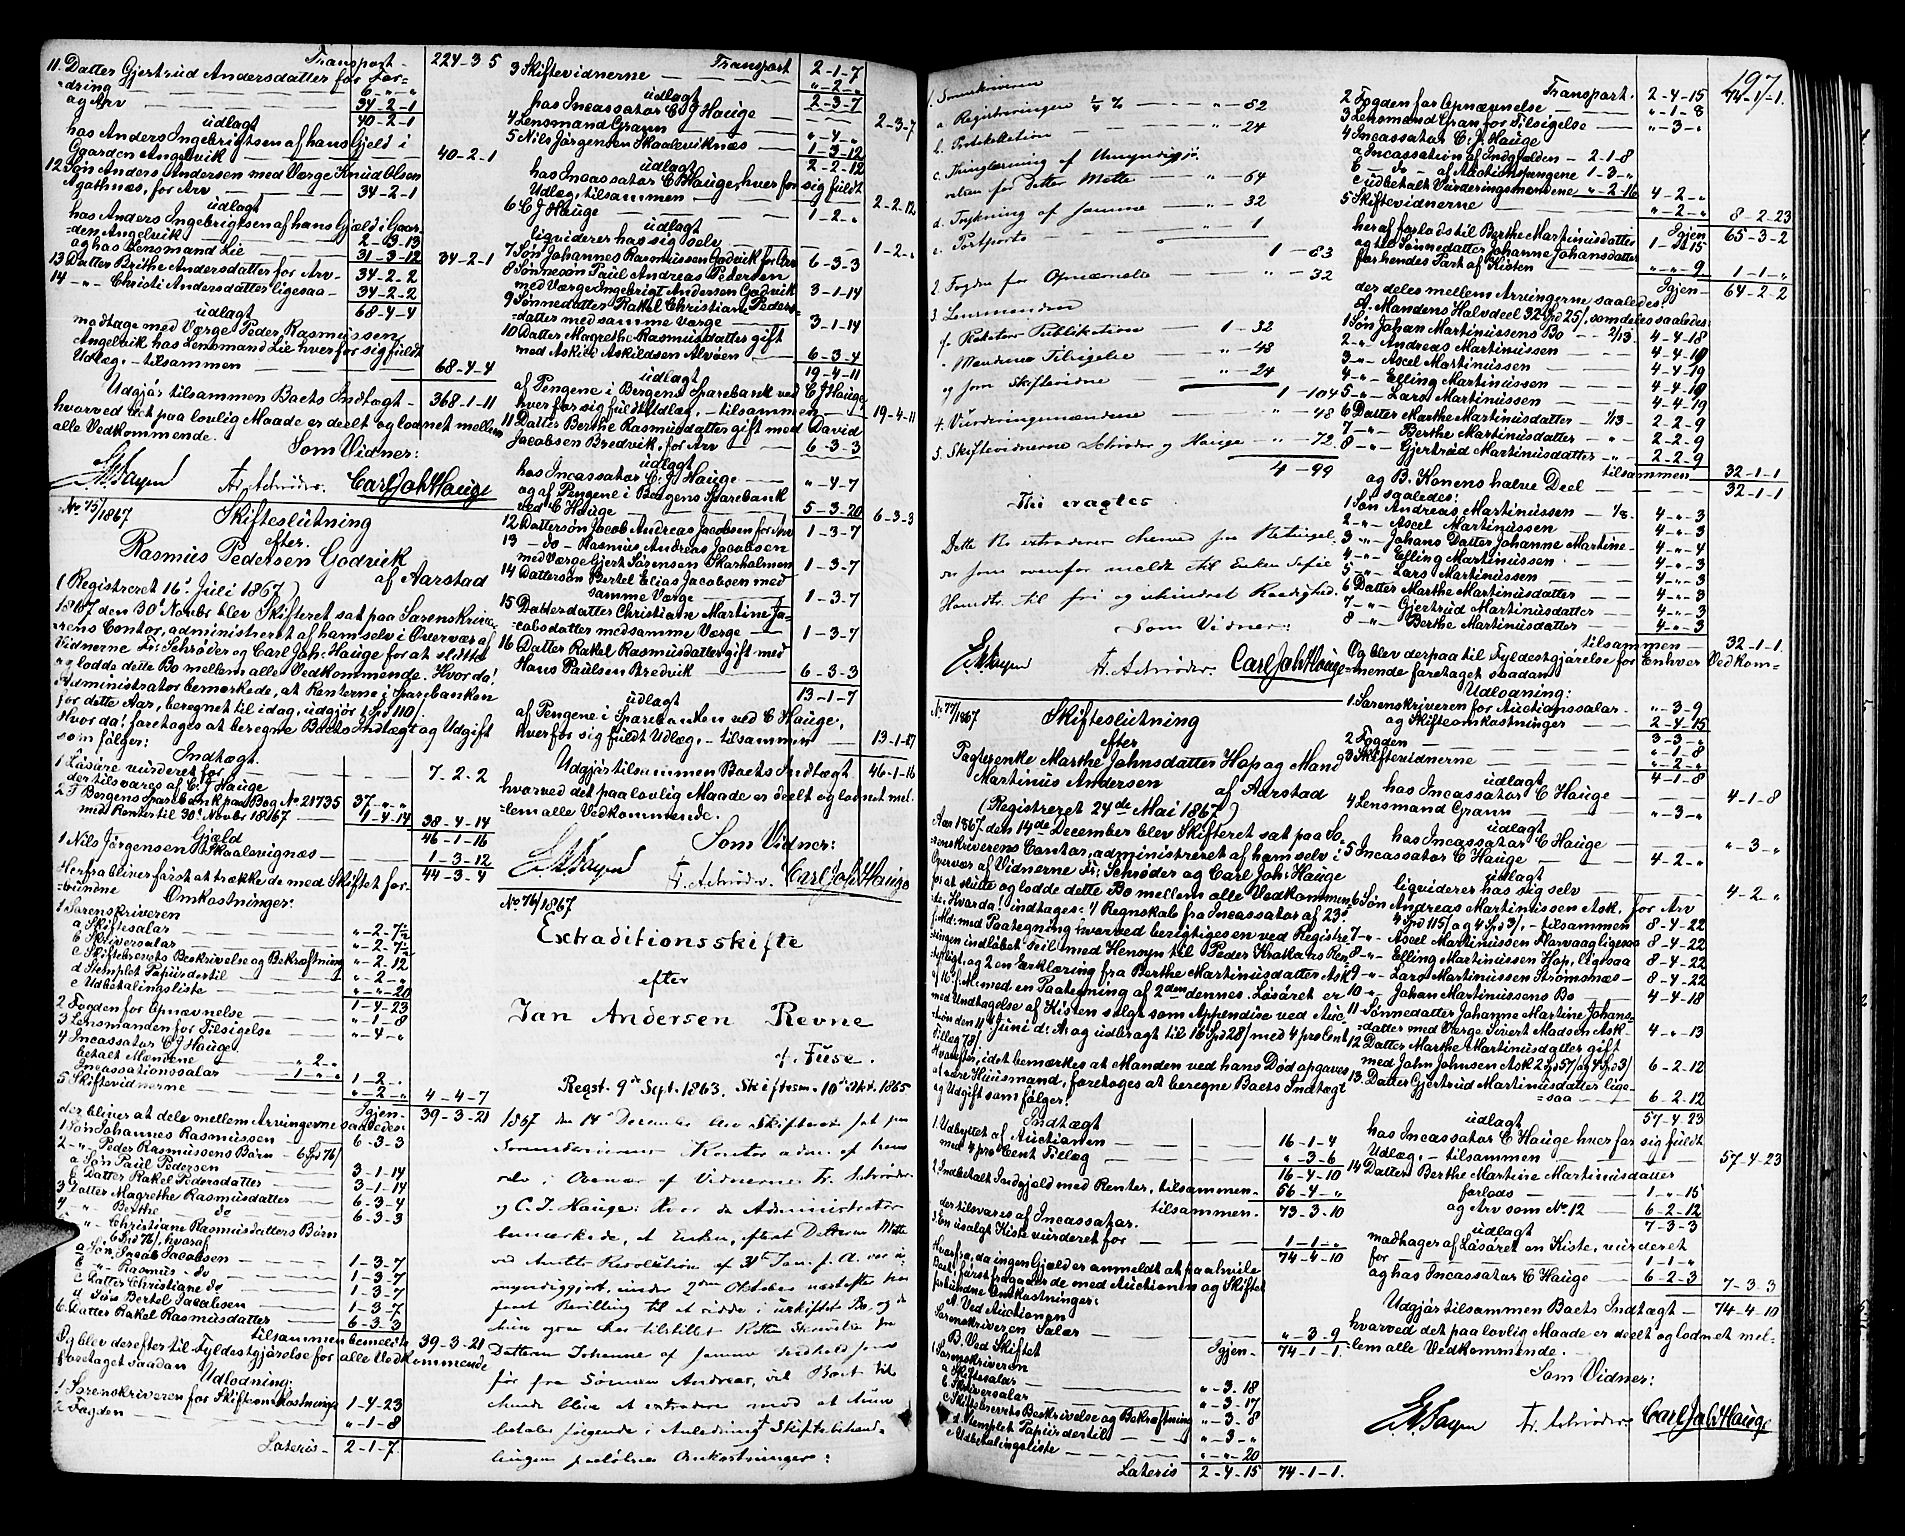 Transport - 224-3-5
11. Datter Gjertrud Andersdatter for For-
dring 6-"-"
og Arv 34-2-1
udlagt 40-2-1
hos Anders Ingebrigtsen af hans Gjeld i
Gaarden Angelvik 40-2-1
12 Søn Anders Andersen med Værge Knud Olsen
Agathnæs, for Arv 34-2-1
udlagt
hos Anders Ingebrigtsen af hans Gjeld i Gaar-
den Angelvik 2-3-13
og hos Lensmand Lie 31-3-12 34-2-1
13 Datter Brithe Andersdatter for Arv- 34-2-2
14 -"- Christi Andersdatter ligesaa- 34-2-2
udlagt 68-4-4
modtage med Værge Peder Rasmussen
Angelvik hos Lensmand Lie hver for sig fuldt
Udlæg, - tilsammen 68-4-4
Udgjør tilsammen Boets Indtægt- 368-1-11
hvorved det paa lovlig Maade er deelt og lodnet mellem
alle Vedkommende.
Som Vidner:
Fr. Schrøder. Carl Joh Hauge
No 75/1867
Skifteslutning
efter
Rasmus Pedersen Godvik
af Aarstad
(Registreret 16' Juli 1867)
1867 den 30' Novbr blev Skifteret sat paa Sorenskrive-
rens Contor, administreret af ham selv i Overvær af
Vidnerne Fr. Schrøder og Carl Joh. Hauge for at slutte
og lodde dette Bo mellem alle Vedkommende. Hvor da:
Administrator bemærkede, at Renterne i Sparebanken
for dette Aar, beregnet til idag, udgjør 1 Spd 110/.
Hvor da: foretages at beregne Boets Indtægt og Udgift
som følger:
Indtægt
1 Løsøre vurderet for 7-2-2
der tilsvares af C. J. Hauge
2 I Bergens Sparebank paa Bog No 21735 37-"-"
med Renter til 30' Novbr 1867 1-4-14 38-4-14
46-1-16
Gjæld
1 Nils Jørgensen Skaalevignæs- 1-3-12
44-3-4
Herfra bliver først at trække de med Skiftet for-
bundne Omkostninger:
1 Sorenskriveren
a Skiftesalar "-2-7½
b Skriversalar "-2-7½
c Skiftebrevets Beskrivelse og Bekræftning "-2-12
d Stemplet Papiir dertil "-2-"
e Udbetalingsliste "-"-20
1-4-23
2 Fogden for Opnævnelse "-1-8
3 Lensmanden for Tilsigelse "-4-"
4 Incassator C. J. Hauge
betalt Mændene "-2-"
Incassationssalar 1-"-" 1-2-"
5 Skiftevidnerne "-2-" 4-4-7
Igjen- 39-3-21
der bliver at dele mellem Arvingerne saaledes
1 Søn Johannes Rasmussen 6-3-3
2 -"- Peder Rasmussens Børn - 6 Spd 76/
a Søn Paul Pedersen 3-1-14
b Datter Rakel Pedersdatter 3-1-14
3 Datter Magrethe Rasmusdatter 6-3-4
4 -"- Berthe do 6-3-3
-"- Christiane Rasmusdatters Børn
6 Spd 76/, hvoraf
a Søn, Jacob Jacobsen 1-3-7
b -"- Rasmus do 1-3-7
c Datter Christiane do 1-3-7
d Søn Bertel Jacobsen 1-3-7
6 Datter Rakel Rasmusdatter 6-3-3
tilsammen bemeldte 39-3-21
Og blev derefter til Fyldestgjørelse for alle Vedkommende
foretaget saadan
Udlodning:
1 Sorenskriveren for Skifteomkostninger 1-4-23
2 Fogden "-1-8
Lateris- 2-1-7
Transport 2-1-7
3 Skiftevidnerne "-2-"
udlagt 2-3-7
hos Incassator C. J. Hauge 2-3-7
4 Lensmand Grann "-4-"
5 Nils Jørgensen Skaaleviknæs 1-3-12
udlagt 2-2-12
hos Incassator C Hauge, hver for sig fuldt
Udlæg, tilsammen 2-2-12
6 C J Hauge 1-2-"
udlagt
liqviderer hos sig selv 1-2-"
7 Søn Johannes Rasmussen Godvik for Arv 6-3-3
8 Sønnesøn Paul Andreas Pedersen
med Værge Ingebrigt Andersen Godvik 3-1-14
9 Sønnedatter Rakel Christiane Peders-
datter med samme Værge 3-1-14
10 Datter Magrethe Rasmusdatter gift
med Askild Askildsen Alvøen 6-3-4
udlagt 19-4-11
af Pengene i Bergens Sparebank ved C J Hauge,
hver for sig fuldt Udlæg, - tilsammen 19-4-11
11 Datter Berthe Rasmusdatter gift med David
Jacobsen Bredvik, for Arv 6-3-3
udlagt
hos Incassator C. J. Hauge "-4-7
og af Pengene i Bergens Sparebank
ved C Hauge 5-3-20 6-3-3
12 Dattersøn Jacob Andreas Jacobsen for Arv 1-3-7
13 -do- Rasmus Andreas Jacobsen
med Værge Gjert Sørensen Skarholmen 1-3-7
14 Dattersøn Bertel Elias Jacobsen med
samme Værge 1-3-7
15 Datterdatter Christiane Martine Ja-
cobsdatter med samme Værge 1-3-7
16 Datter Rakel Rasmusdatter gift med
Hans Paulsen Bredvik 6-3-3
13-1-7
udlagt
af Pengene i Sparebanken ved C Hauge,
hver for sig fuldt Udlæg, - tilsammen 13-1-7
Udgjør tilsammen Boets Indtægt 46-1-16
hvorved det paa lovlig Maade er deelt og lodnet mel-
lem alle Vedkommende.
Som Vidner:
Fr. Schrøder. Carl Joh Hauge
No 76/1867
Extraditionsskifte
efter
Jan Andersen Revne
af Fuse.
Regst. 9' Sept. 1863. Skiftesm. 10' Okt. 1865
1867 den 14' December blev Skifteret sat paa
Sorenskriverens Kontor adm. af ham
selv i Overvær af Vidnerne Fr. Schrøder
og C. J. Hauge: Hvor da Administrator
bemærkede, at Enken, efterat Datteren Mette
ved Amtets Resolution af 31te Jan. f. A. var u-
myndiggjort, under 2den Oktober næstefter har
faaet Bevilling til at sidde i uskiftet Bo, og da
hun ogsaa har tilstillet Retten Skjøde fra
Datteren Johanne af samme Indhold som
før fra Sønnen Andreas, vil Boet til
hende blive at extradere mod at hun
betaler følgende i Anledning Skiftebehand-
lingen paaløbne Omkostninger:
197
1. Sorenskriveren
a. Registreringen ¼ % "-52
b. Protokollation "-24
c. Kunglørning af Umyndiggjø-
relsen for Datter Mette "-64
d. Trykning af samme "-32
e. Portporto "-1
1-83
2. Fogden for Opnævnelse "-32
3. Lensmanden
f. Publikation 1-32
Mændenes Tilsigelse "-48
og som Skiftevidne "-24
1-104
4. Vurderingsmændene "-48
5. Skiftevidnerne Schrøder og Hauge "-72
4-99
Thi eragtes
Dette Bo extraderes
der som ovenfor meldt til Enken Sofie
Hansdtr. til fri og uhindret Raadighed.
Som Vidner:
Fr. Schrøder. Carl Joh Hauge
No 77/1867
Skifteslutning
efter
Pagterenke Marthe Johnsdatter Hop og Mand
Martinus Andersen
af Aarstad
(Registreret 24de Mai 1867)
Aar 1867 den 14de December blev Skifteret sat paa So-
renskriverens Contor, administreret af ham selv i
Overvær af Vidnerne Fr: Schrøder og Carl Joh: Hauge
for at slutte og lodde dette Bo mellem alle Vedkommen-
de: Hvor da: indtages: 1 Regnskab fra Incassator af 23'
f. Md: med Paategning hvorved berigtigesen ved Registre-
ringen indløbet Feil med Hensyn til Peder Krohns Ren-
tepligt, og 2 en Erklæring fra Berthe Martinusdatter Ask
af 16' f. M: med en Paategning af 2den dennes. Løsøret er
med Undtagelse af Kisten solgt som Appendixe ved Auc-
tion den 11' Juni d: A: og udbragt til 16 Spd 28/ med 4 procent
Tillæg 78/.
Hvorefter, idet bemærkes at Manden ved hans Død opgaves
at være Huusmand, foretages at beregne Boets Indtægt
og Udgift som følger:
Indtægt
1. Udbyttet af Auctionen 16-1-4
med 4 pro Cent Tillæg "-3-6
16-4-10
2. Indbetalt Indgjæld med Renter, tilsammen- 56-4-"
tilsammen- 73-3-10
der tilsvares af Incassator.
3. En usolgt Kiste vurderet for 1-1-"
74-4-10
Hvorfra, da ingen Gjæld er anmeldt at paahvile
Boet først fragaar de med Auctionen og Skiftet
forbundne Omkostninger:
A. Ved Auctionen
Sorenskriveren Salær "-3-9
B. Ved Skiftet Igjen- 74-1-1.
1 Sorenskriveren
a Skiftesalar "-3-18
b Skriversalar "-3-17
c Skiftebrevets Beskrivelse og Bekræftning "-3-8
d Stemplet Papiir dertil "-3-"
e Udbetalingsliste "-"-20
Lateris 2-4-15 74-1-1.
Transport. 2-4-15 74-1-1.
2 Fogden for Opnævnelse "-1-8
3 Lensmand Gran for Tilsigelse "-3-"
4 Incassator C. J. Hauge
a Incassation af Indgjælden - 2-1-8
b -do- af Auctionspengene 1-3-"
c udbetalt Vurderingsmændene "-2-16 4-2-"
5 Skiftevidnerne "-2-" 8-2-23
Igjen 65-3-2
heraf forlods til Berthe Martinusdatter 1-"-15
og til Sønnedatter Johanne Johansdatter
for hendes Part af Kisten "-"-9 1-1-"
Igjen- 64-2-2
der deles mellem Arvingerne saaledes
A. Mandens Halvdeel 32 Spd 25/, som deles saaledes:
1 Søn Johan Martinussens Bo 2/13 4-4-18
2 -"- Andreas Martinussen 4-4-19
3 -"- Ascel Martinussen 4-4-19
4 -"- Elling Martinussen 4-4-19
5 -"- Lars Martinussen 4-4-19
6 Datter Marthe Martinusdatter 1/13- 2-2-9
7 -"- Berthe Martinusdatter 2-2-9
8 -"- Gjertrud Martinusdatter 2-2-9
tilsammen 32-1-1
og B. Konens halve Deel 32-1-1
saaledes:
1 Søn Andreas Martinussen 1/8- 4-"-3
2 -"- Ascel Martinussen 4-"-3
3 -"- Johans Datter Johanne Martine- 4-"-4
4 -"- Elling Martinussen 4-"-3
5 -"- Lars Martinussen 4-"-3
6 Datter Marthe Martinusdatter 4-"-3
7 -"- Gjertrud Martinusdatter 4-"-3
8 -"- Berthe Martinusdatter 4-"-3
tilsammen 32-1-1.
Og blev derpaa til Fyldestgjørelse for Enhver Vedkom-
mende foretaget saadan
Udlodning:
1 Sorenskriveren for Auctionssalar- "-3-9
og Skifteomkostninger 2-4-15
3-3-"
2 Fogden "-1-8
3 Skiftevidnerne "-2-"
udlagt 4-1-8
hos Incassator C Hauge 4-1-8
4 Lensmand Grann "-3-"
udlagt
hos Incassator C Hauge "-3-"
5 Incassator C Hauge 4-2-"
udlagt
liqviderer hos sig selv 4-2-"
6 Søn Andreas Martinussen Ask, for Arv
4 Spd 115/ og 4 Spd 3/, - tilsammen 8-4-22
7 -"- Ascel Martinussen Norvaag ligesaa 8-4-22
8 -"- Elling Martinussen Hop, ligesaa 8-4-22
9 -"- Lars Martinussen Strømsnæs- 8-4-22
10 -"- Johan Martinussens Bo 4-4-18
11 Sønnedatter Johanne Martine Johans-
datter med Værge Sivert Madsen Ask- 4-"-13
12 Datter Marthe Martinusdatter gift
med John Johnsen Ask 2 Spd 57/ og 4 Spd 3/ 6-2-12
13. Datter Gjertrud Martinusdatter lige-
saa 6-2-12
udlagt 57-4-23
hos Incassator C Hauge hver for sig fuldt
Udlæg, - tilsammen 57-4-23
14 Datter Berthe Martine Martinusdatter
forlods 1-"-15
og Arv som No 12 6-2-12
udlagt 7-3-3
modtager af Løsøret en Kiste, vurderet
for 1-1-"
og hos Incassator C Hauge 6-2-3 7-3-3
Udgjør tilsammen Boets Indtægt 74-4-10
hvorved det paa lovlig Maade er deelt og lodnet mel-
lem alle Vedkommende.
Som Vidner:
Fr. Schrøder. Carl Joh Hauge